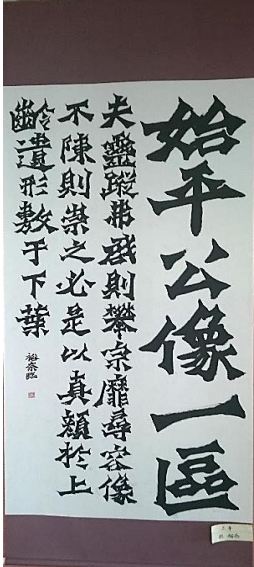 始平公像一區
夫靈蹤弗啟則攀宗靡尋容像
不陳則崇之必是以真顏於上
齡遺形敷于下葉
臨